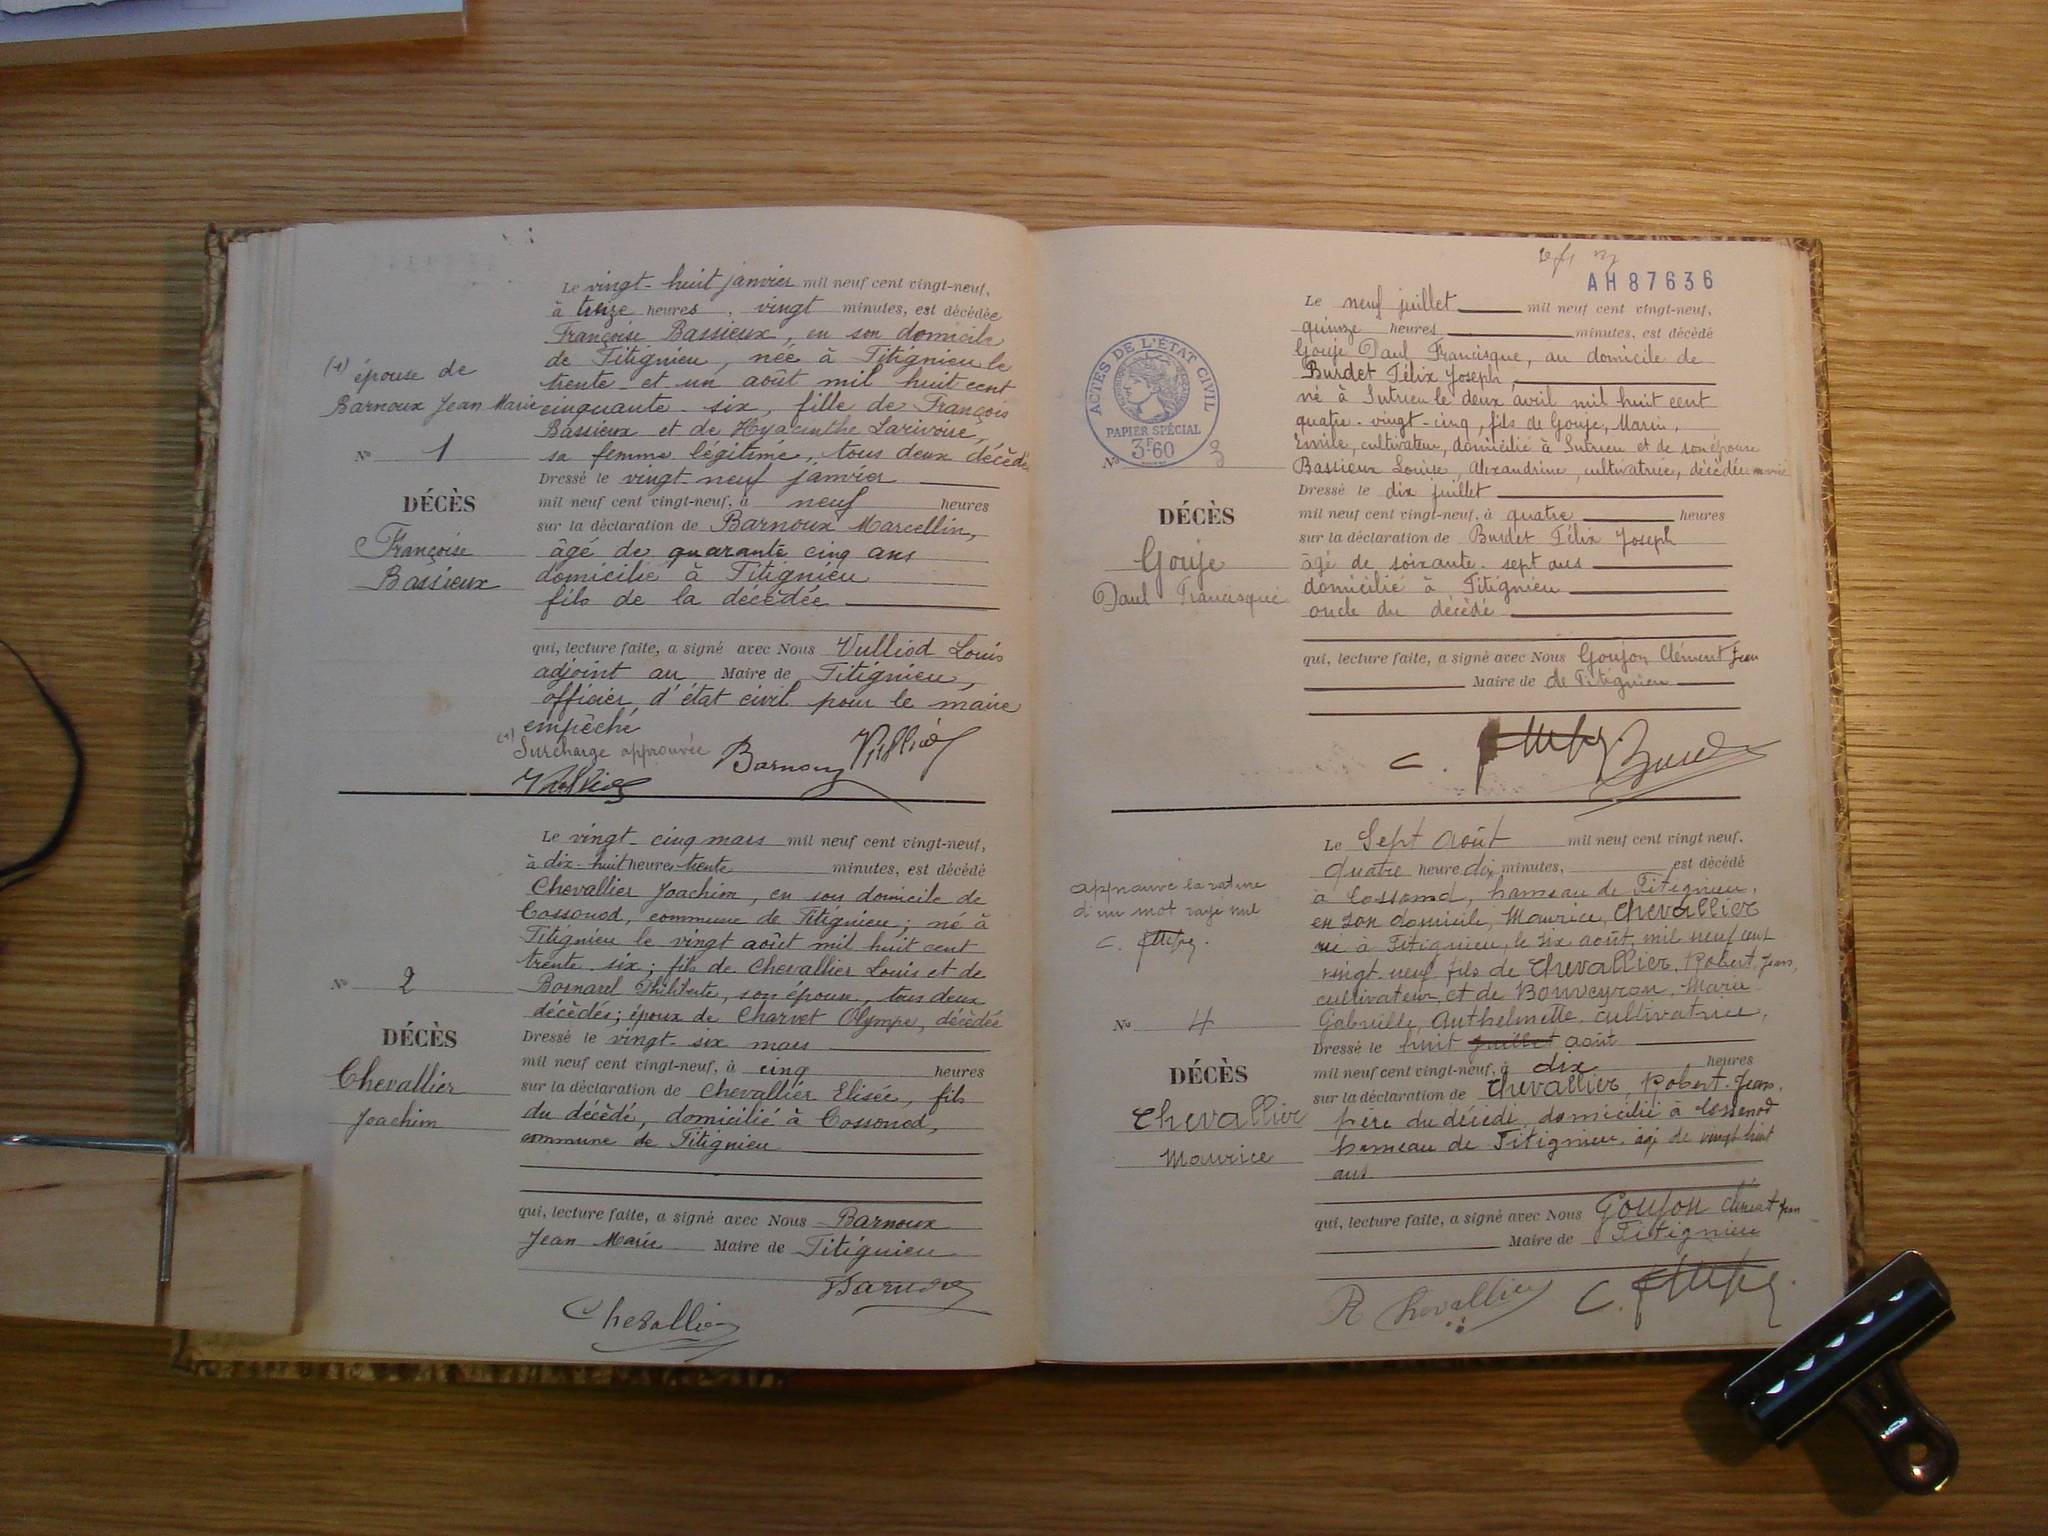 Le vingt-huit janvier mil neuf cent vingt-neuf,
à treize heures, vingt minutes, est décédée
Françoise Bassieux, en son domicile
de Titignieu, née à Titignieu le
trente et un août mil huit cent
cinquante-six, fille de François
Bassieux et de Hyacinthe Larivoire,
sa femme légitime, tous deux décédés
(1) épouse de
Barnoux Jean Marie
No 1
DÉCÈS
Françoise
Bassieux
Dressé le vingt-neuf janvier
mil neuf cent vingt-neuf, à neuf heures
sur la déclaration de Barnoux Marcellin,
âgé de quarante cinq ans
domicilié à Titignieu
fils de la décédée
qui, lecture faite, a signé avec Nous Vulliod Louis
adjoint au Maire de Titignieu,
officier d'état civil pour le maire
empêché
(1) Surcharge approuvée
Barnoux Vulliod
Vulliod
Le vingt-cinq mars mil neuf cent vingt-neuf,
à dix-huit heures trente minutes, est décédé
Chevallier Joachim, en son domicile de
Cossonod, commune de Titignieu; né à
Titignieu le vingt août mil huit cent
trente-six; fils de Chevallier Louis et de
Bornarel Philiberte, son épouse, tous deux
décédés; époux de Charvet Olympe, décédée
No 2
DÉCÈS
Chevallier
Joachim
Dressé le vingt-six mars
mil neuf cent vingt-neuf, à cinq heures
sur la déclaration de Chevallier Elisée, fils
du décédé, domicilié à Cossonod,
commune de Titignieu
qui, lecture faite, a signé avec Nous Barnoux
Jean Marie Maire de Titignieu
Barnoux
Chevallier
AH87636
Le neuf juillet mil neuf cent vingt-neuf,
quinze heures minutes, est décédé
Gouje Paul Francisque, au domicile de
Burdet Félix Joseph,
né à Sutrieu le deux avril mil huit cent
quatre-vingt-cinq, fils de Gouje, Marin,
Emile, cultivateur, domicilié à Sutrieu et de son épouse
Bassieux Louise, Alexandrine, cultivatrice, décédée
ACTES DE L'ÉTAT CIVIL
PAPIER SPÉCIAL
3F60
No 3
DÉCÈS
Gouje
Paul Francisque
Dressé le dix juillet
mil neuf cent vingt-neuf, à quatre heures
sur la déclaration de Burdet Félix Joseph
âgé de soixante-sept ans
domicilié à Titignieu
oncle du décédé
qui, lecture faite, a signé avec Nous Goujon Clément Jean
Maire de de Titignieu
C.
Burdet
Le Sept Août mil neuf cent vingt neuf.
quatre heure dix minutes, est décédé
à Cossonod, hameau de Titignieu,
en son domicile, Maurice, Chevallier
né à Titignieu, le six août, mil neuf cent
vingt-neuf fils de Chevallier, Robert, Jean,
cultivateur, et de Bouveyron, Marie
Gabrielle, Anthelmette, cultivatrice,
approuvé la rature
d'un mot rayé nul
C.
No 4
DÉCÈS
Chevallier
Maurice
Dressé le huit juillet août
mil neuf cent vingt-neuf, à dix heures
sur la déclaration de Chevallier, Robert-Jean,
père du décédé, domicilié à Cossonod
hameau de Titignieu, âgé de vingt-huit
ans.
qui, lecture faite, a signé avec Nous Goujon Clément Jean
Maire de Titignieu
R Chevallier C.